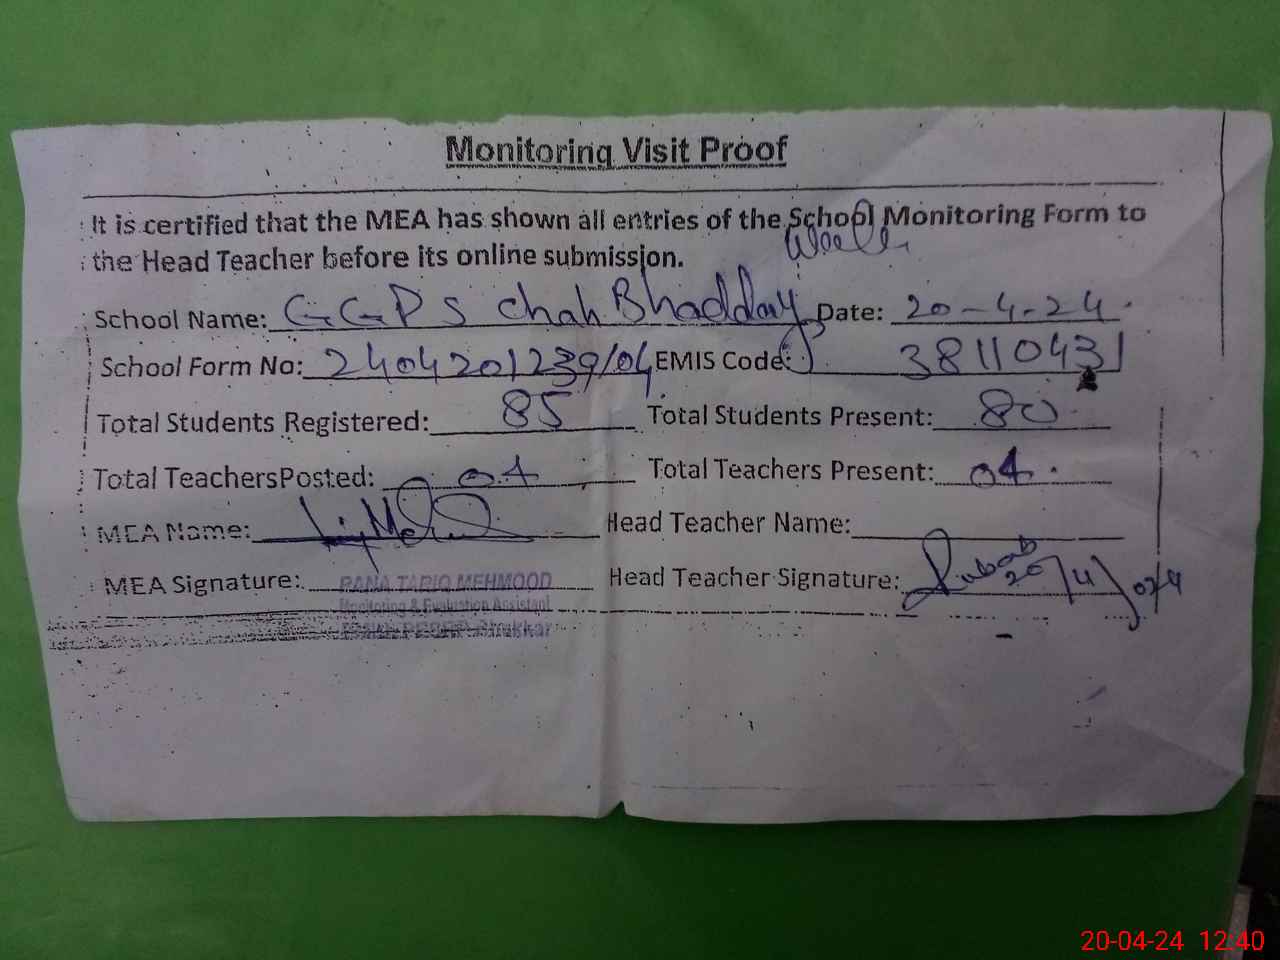 Monitoring Visit Proof
It is certified that the MEA has shown all entries of the School Monitoring Form to
the Head Teacher before its online submission.
Walla
School Name: GGPS Chah Bhadday Date: 20-4-24
School Form No: 2404201239/04 EMIS Code: 38110431
Total Students Registered: 85 Total Students Present: 80
Total TeachersPosted: 04 Total Teachers Present: 04
MEA Name: Head Teacher Name:
MEA Signature: RANA TARIQ MEHMOOD Head Teacher Signature: Rubab 20/4/024
Monitoring & Evaluation Assistant
Bhakkar
20-04-24 12:40